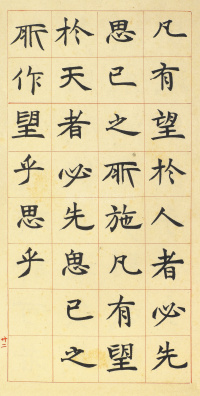 凡有望於人者必先
思己之所施凡有望
於天者必先思己之
所作望乎思乎
廿二